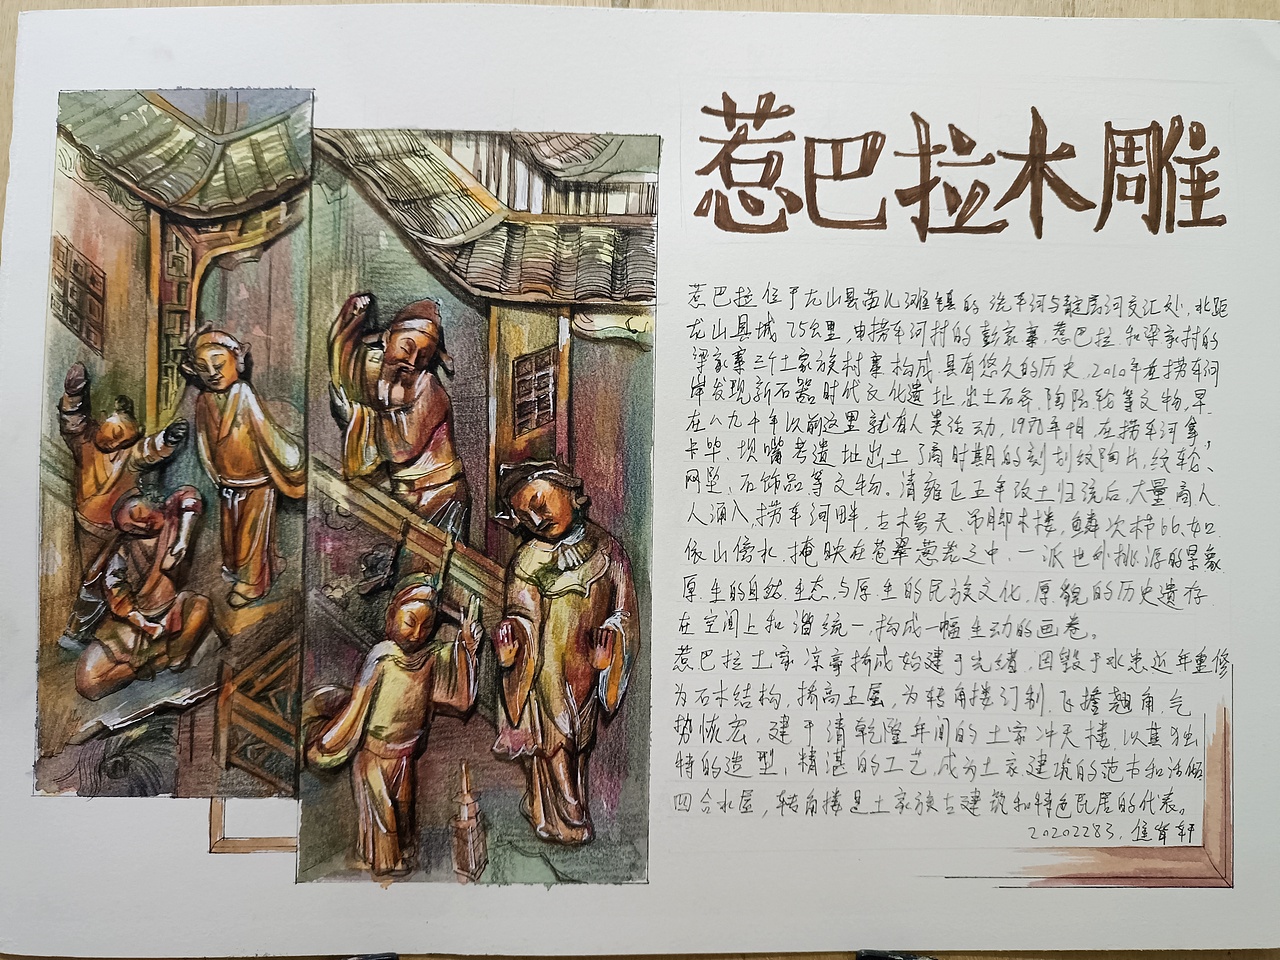 惹巴拉木雕
惹巴拉位于龙山县苗儿滩镇的洗车河与靛房河交汇处,北距
龙山县城75公里,由捞车河村的彭家寨、惹巴拉和梁家村的
梁家寨三个土家族村寨构成,具有悠久的历史,2010年在捞车河
岸发现新石器时代文化遗址,出土石斧,陶纺轮等文物,早
在八九千年以前这里就有人类活动,1978年 在捞车河
坝嘴 遗址出土了商时期的刻划纹陶片,纹轮、
网坠、石饰品等文物。清雍正五年改土归流后,大量商人
人涌入,捞车河畔,古木参天,吊脚木楼,鳞次栉比,如
依山傍水,掩映在苍翠葱茏之中,一派世外桃源的景象
原生的自然生态,与原生的民族文化,原貌的历史遗存
在空间上和谐统一,构成一幅生动的画卷。
惹巴拉土家凉亭桥 始建于光绪,因毁于水患近年重修
为石木结构,桥高五层,为转角楼订制,飞檐翘角,气
势恢宏,建于清乾隆年间的土家冲天楼,以其独
特的造型,精湛的工艺,成为土家建筑的范本和
四合水屋,转角楼是土家族古建筑和特色民居的代表。
20202283,